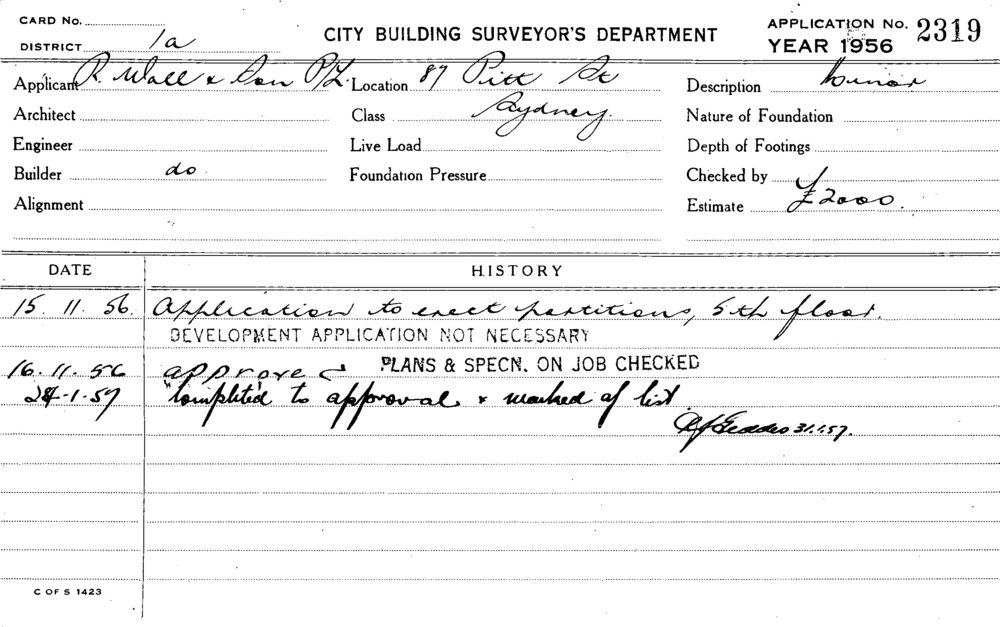 CARD No.
DISTRICT 1a
CITY BUILDING SURVEYOR'S DEPARTMENT
APPLICATION No. 2319
YEAR 1956
Applicant R. Wall & Son P/L Location 87 Pitt St Description Minor
Architect Class Sydney. Nature of Foundation
Engineer Live Load Depth of Footings
Builder do Foundation Pressure Checked by
Alignment Estimate £2000.
DATE HISTORY
15.11.56. Application to erect partitions, 5th floor.
DEVELOPMENT APPLICATION NOT NECESSARY
16.11.56 approved PLANS & SPECN. ON JOB CHECKED
1.57 "Completed" to approval & marked of list.
Geddes 31.1.57.
C OF S 1423